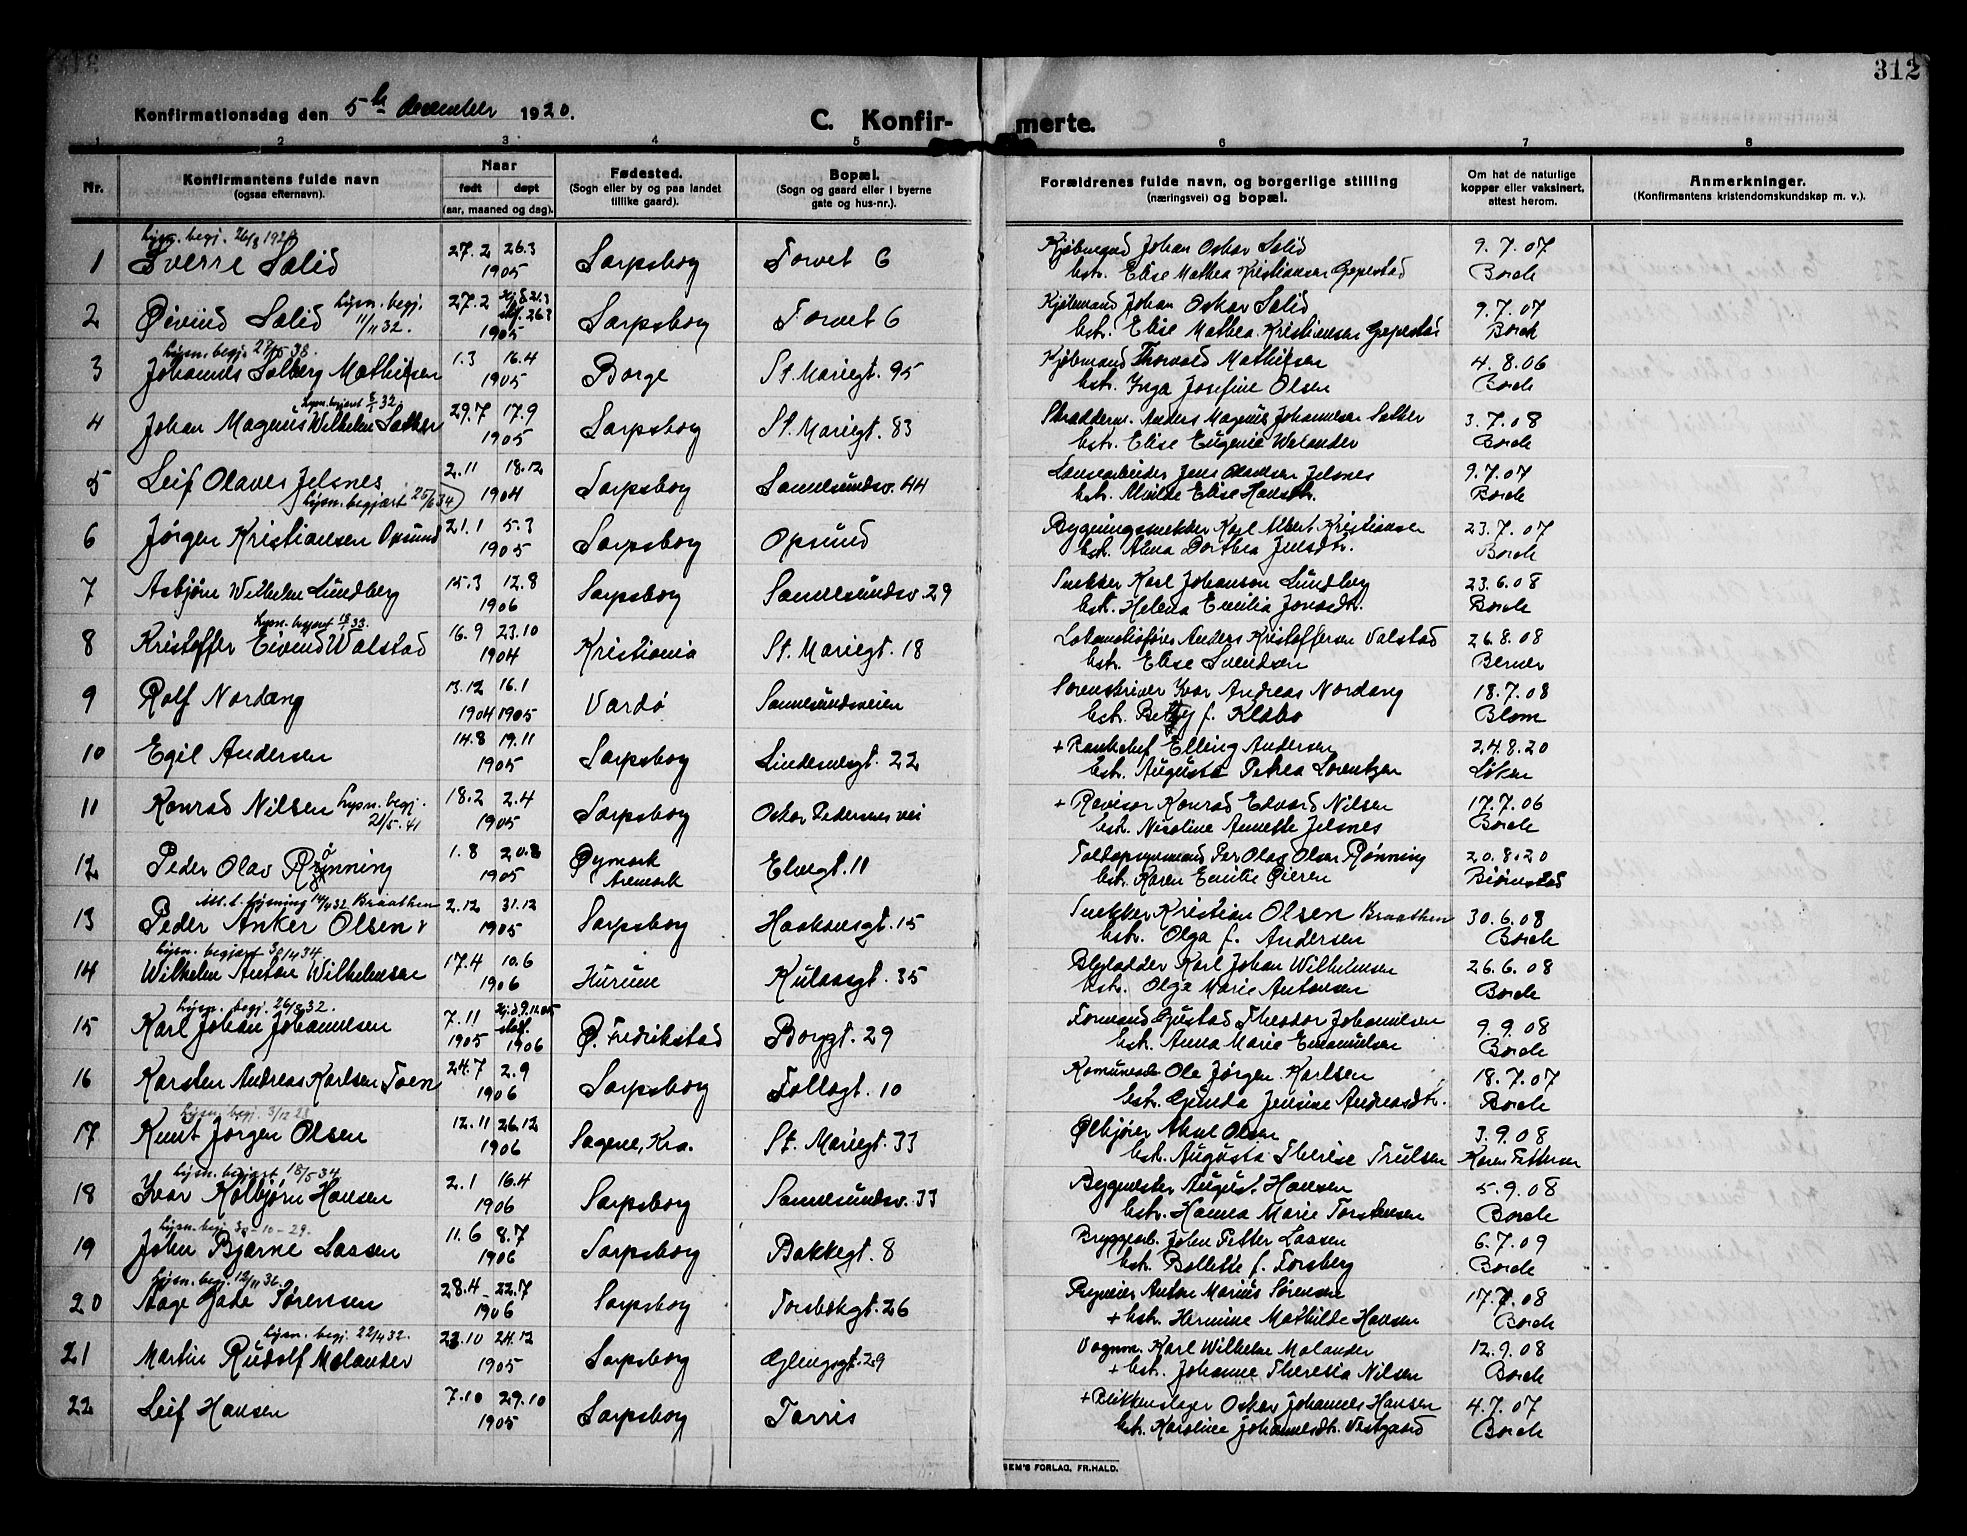 312
Konfirmationsdag den 5te December 1920.
C. Konfirmerte.
1 2 3 4 5 6 7 8
Nr.
Konfirmantens fulde navn
(ogsaa efternavn).
Naar
født døpt
(aar, maaned og dag).
Fødested.
(Sogn eller by og paa landet
tillike gaard).
Bopæl.
(Sogn og gaard eller i byerne
gate og hus-nr.).
Forældrenes fulde navn, og borgerlige stilling
(næringsvei) og bopæl.
Om hat de naturlige
kopper eller vaksinert,
attest herom.
Anmerkninger.
(Konfirmantens kristendomskundskap m. v.).
lysn. begj. 26/8 192
1 Sverre Solid 27.2 26.3 Sarpsborg Torvet 6 Kjøbmand Johan Oskar Solid 9.7.07
1905 hstr. Elise Mathea Kristiansen Gepestad Borch
2 Øivind Solid lysn. begj. 11/11 32. 27.2 Hj.d. 21.3 stf. 26.3 Sarpsborg Torvet 6 Kjøbmand Johan Oskar Solid 9.7.07
1905 hstr. Elise Mathea Kristiansen Gepestad Borch
lysn. begj. 38.
3 Johannes Solberg Mathisen 1.3 16.4 Borge St. Mariegt. 95 Kjøbmand Thorvald Mathisen 4.8.06
1905 hstr. Inga Josefine Olsen Borch
lysn. begjært 32.
4 Johan Magnus Wilhelm Sather 29.7 17.9 Sarpsborg St. Mariegt. 83 Skrædderm. Anders Magnus Johannesen Sather 3.7.08
1905 hstr. Elise Eugenie Walander Borch
5 Leif Olaves Jelsnes 2.11 18.12 Sarpsborg Sannesundsv. 44 Jens Olavesen Jelsnes 9.7.07
lysn. begjært 25/6 34 1904 hstr. Alvilde Elise Hansdtr. Borch
6 Jørgen Kristiansen Opsund 21.1 5.3 Sarpsborg Opsund Bygningssnekker Karl Albert Kristiansen 23.7.07
1905 hstr. Alma Dorthea Jensdtr. Borch
7 Asbjørn Wilhelm Lundberg 15.3 12.8 Sarpsborg Sannesundsv. 29 Snekker Karl Johanson Lundberg 23.6.08
1906 hstr. Helena Emilia Jonasdtr. Borch
lysn. begjært 33.
8 Kristoffer Eivind Walstad 16.9 23.10 Kristiania St. Mariegt. 18 Lokomotivfører Anders Kristoffersen Valstad 26.8.08
1904 hstr. Elise Svendsen Berner
9 Rolf Nordang 13.12 16.1 Vardø Sannesundsveien Sorenskriver Ivar Andreas Nordang 18.7.08
1904 1905 hstr. Betzy f. Klæbo Blom
10 Egil Andersen 14.8 19.11 Sarpsborg Lindemsgt. 22 + Bankchef Elling Andersen 24.8.20
1905 hstr. Augusta Petrea Lorentzen Løken
11 Konrad Nilsen lysn. begj. 21/5.41 18.2 2.4 Sarpsborg Oskar Pedersens vei + Revisor Konrad Edvard Nilsen 17.7.06
1905 hstr. Nicoline Annette Jelsnes Borch
12 Peder Olav Rønning 1.8 20.8 Øymark Elvegt. 11 Toldopsynsmand Per Olav Olsen Rønning 20.8.20
1905 Aremark hstr. Karen Emilie Øieren Bjørnstad
Att. t. lysning 14/4 32 Braathen
13 Peder Anker Olsen 2.12 31.12 Sarpsborg Haakonsgt. 15 Snekker Kristian Olsen Braathen 30.6.08
1905 hstr. Olga f. Andersen Borch
lysn. begjært 30/4 34
14 Wilhelm Anton Wilhelmsen 17.4 10.6 Hurum Kulaasgt. 35 Karl Johan Wilhelmsen 26.6.08
1906 hstr. Olga Marie Antonsen Borch
lysn. begj. 26/8 32.
15 Karl Johan Johannesen 7.11 Hj.d. 9.11.05 stf. Ø. Fredrikstad Borggt. 29 Formand Gustav Theodor Johannesen 9.9.08
1905 1906 hstr. Anna Marie Emanuelsen Borch
16 Karsten Andreas Karlsen Toen 24.7 2.9 Sarpsborg Follogt. 10 Ole Jørgen Karlsen 18.7.07
1906 hstr. Gunda Jensine Andreasdtr. Borch
lysn. begj. 3/12 28
17 Knut Jørgen Olsen 12.11 26.12 Sagene, Kra. St. Mariegt. 33 Ølkjører Aksel Olsen 3.9.08
1906 hstr. Augusta Therese Trulsen Karen Pettersen
lysn. begjært 18/5 34
18 Ivar Kolbjørn Hansen 2.1 16.4 Sarpsborg Sannesundsv. 33 Bygmester August Hansen 5.9.08
1906 hstr. Hanna Marie Torstensen Borch
lysn. begj. 30-10-29.
19 John Bjarne Lassen 11.6 8.7 Sarpsborg Bakkegt. 8 Bryggearb. John Petter Lassen 6.7.09
1906 hstr. Bollette f. Forsberg Borch
lysn. begj. 12/11 36.
20 Aage Gade Sørensen 28.4 22.7 Sarpsborg Torsbekgt. 26 Anton Marius Sørensen 17.7.08
1906 + hstr. Hermine Mathilde Hansen Borch
lysn. begj. 22/4 32.
21 Martin Rudolf Molander 22.10 24.12 Sarpsborg Glengsgt. 29 Vognm. Karl Wilhelm Molander 12.9.08
1905 + hstr. Johanne Theresia Nilsen Borch
22 Leif Hansen 7.10 29.10 Sarpsborg Tarris + Blikkenslager Oskar Johannes Hansen 4.7.07
1905 hstr. Karoline Johannesdtr. Vestgaard Borch
SEM'S FORLAG, FR.HALD.